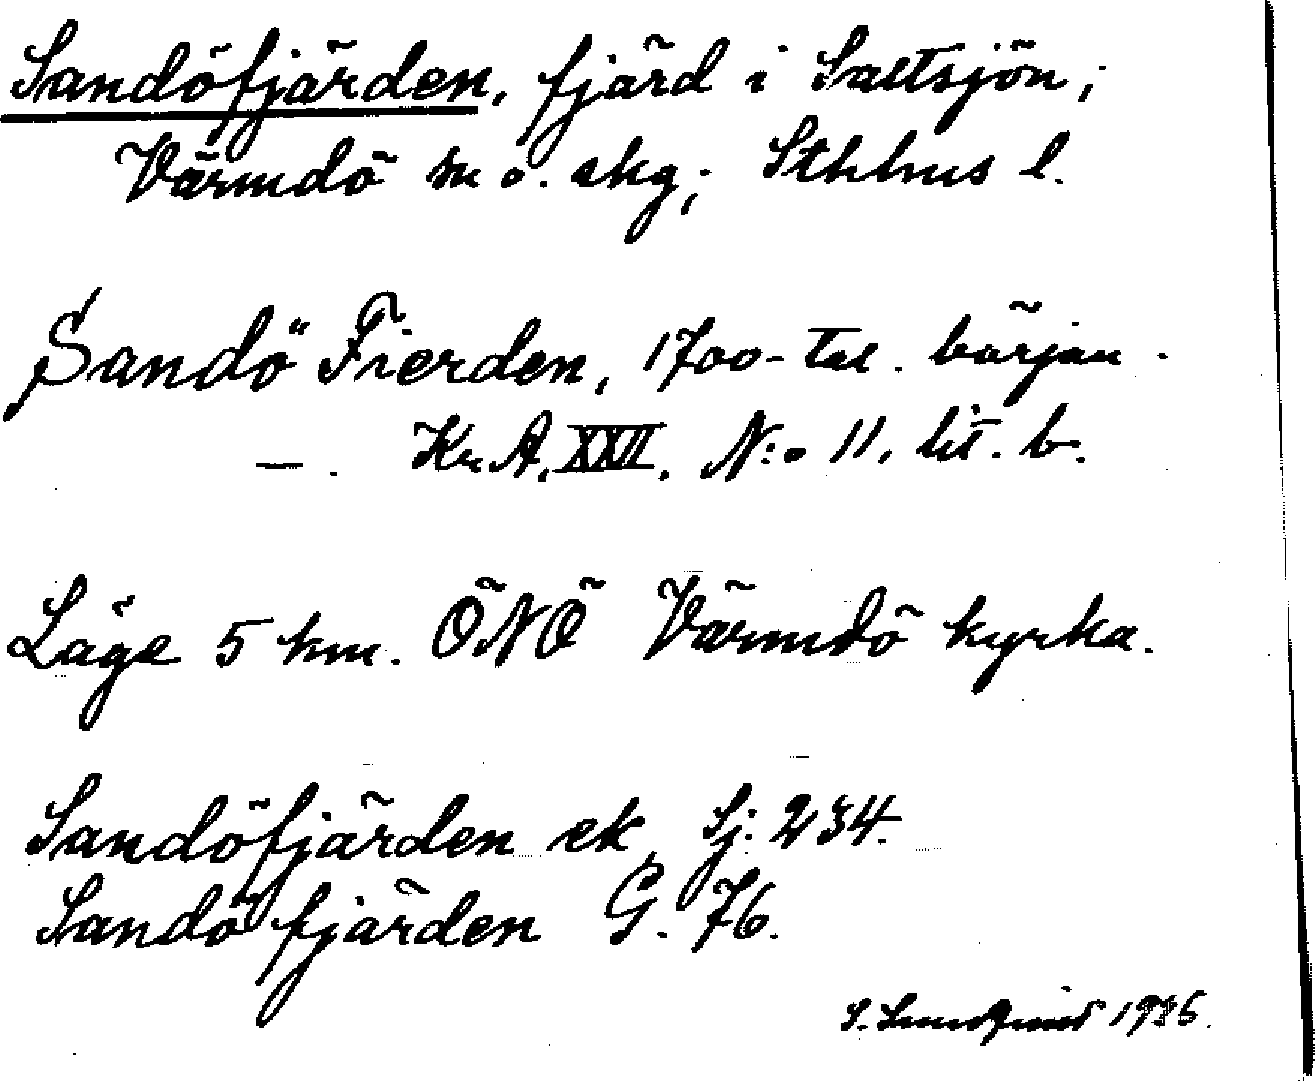 Sandöfjärden, fjärd i Saltsjön;
Värmdö sn o. skg; Sthlms l.
Sandö Fierden, 1700-tal. början.
—. Kr. A. XXII. N:o 11, lit. b.
Läge 5 km. ÖNÖ Värmdö kyrka.
Sandöfjärden ek, Sj. 234.
Sandö fjärden G. 76.
S. 1936.